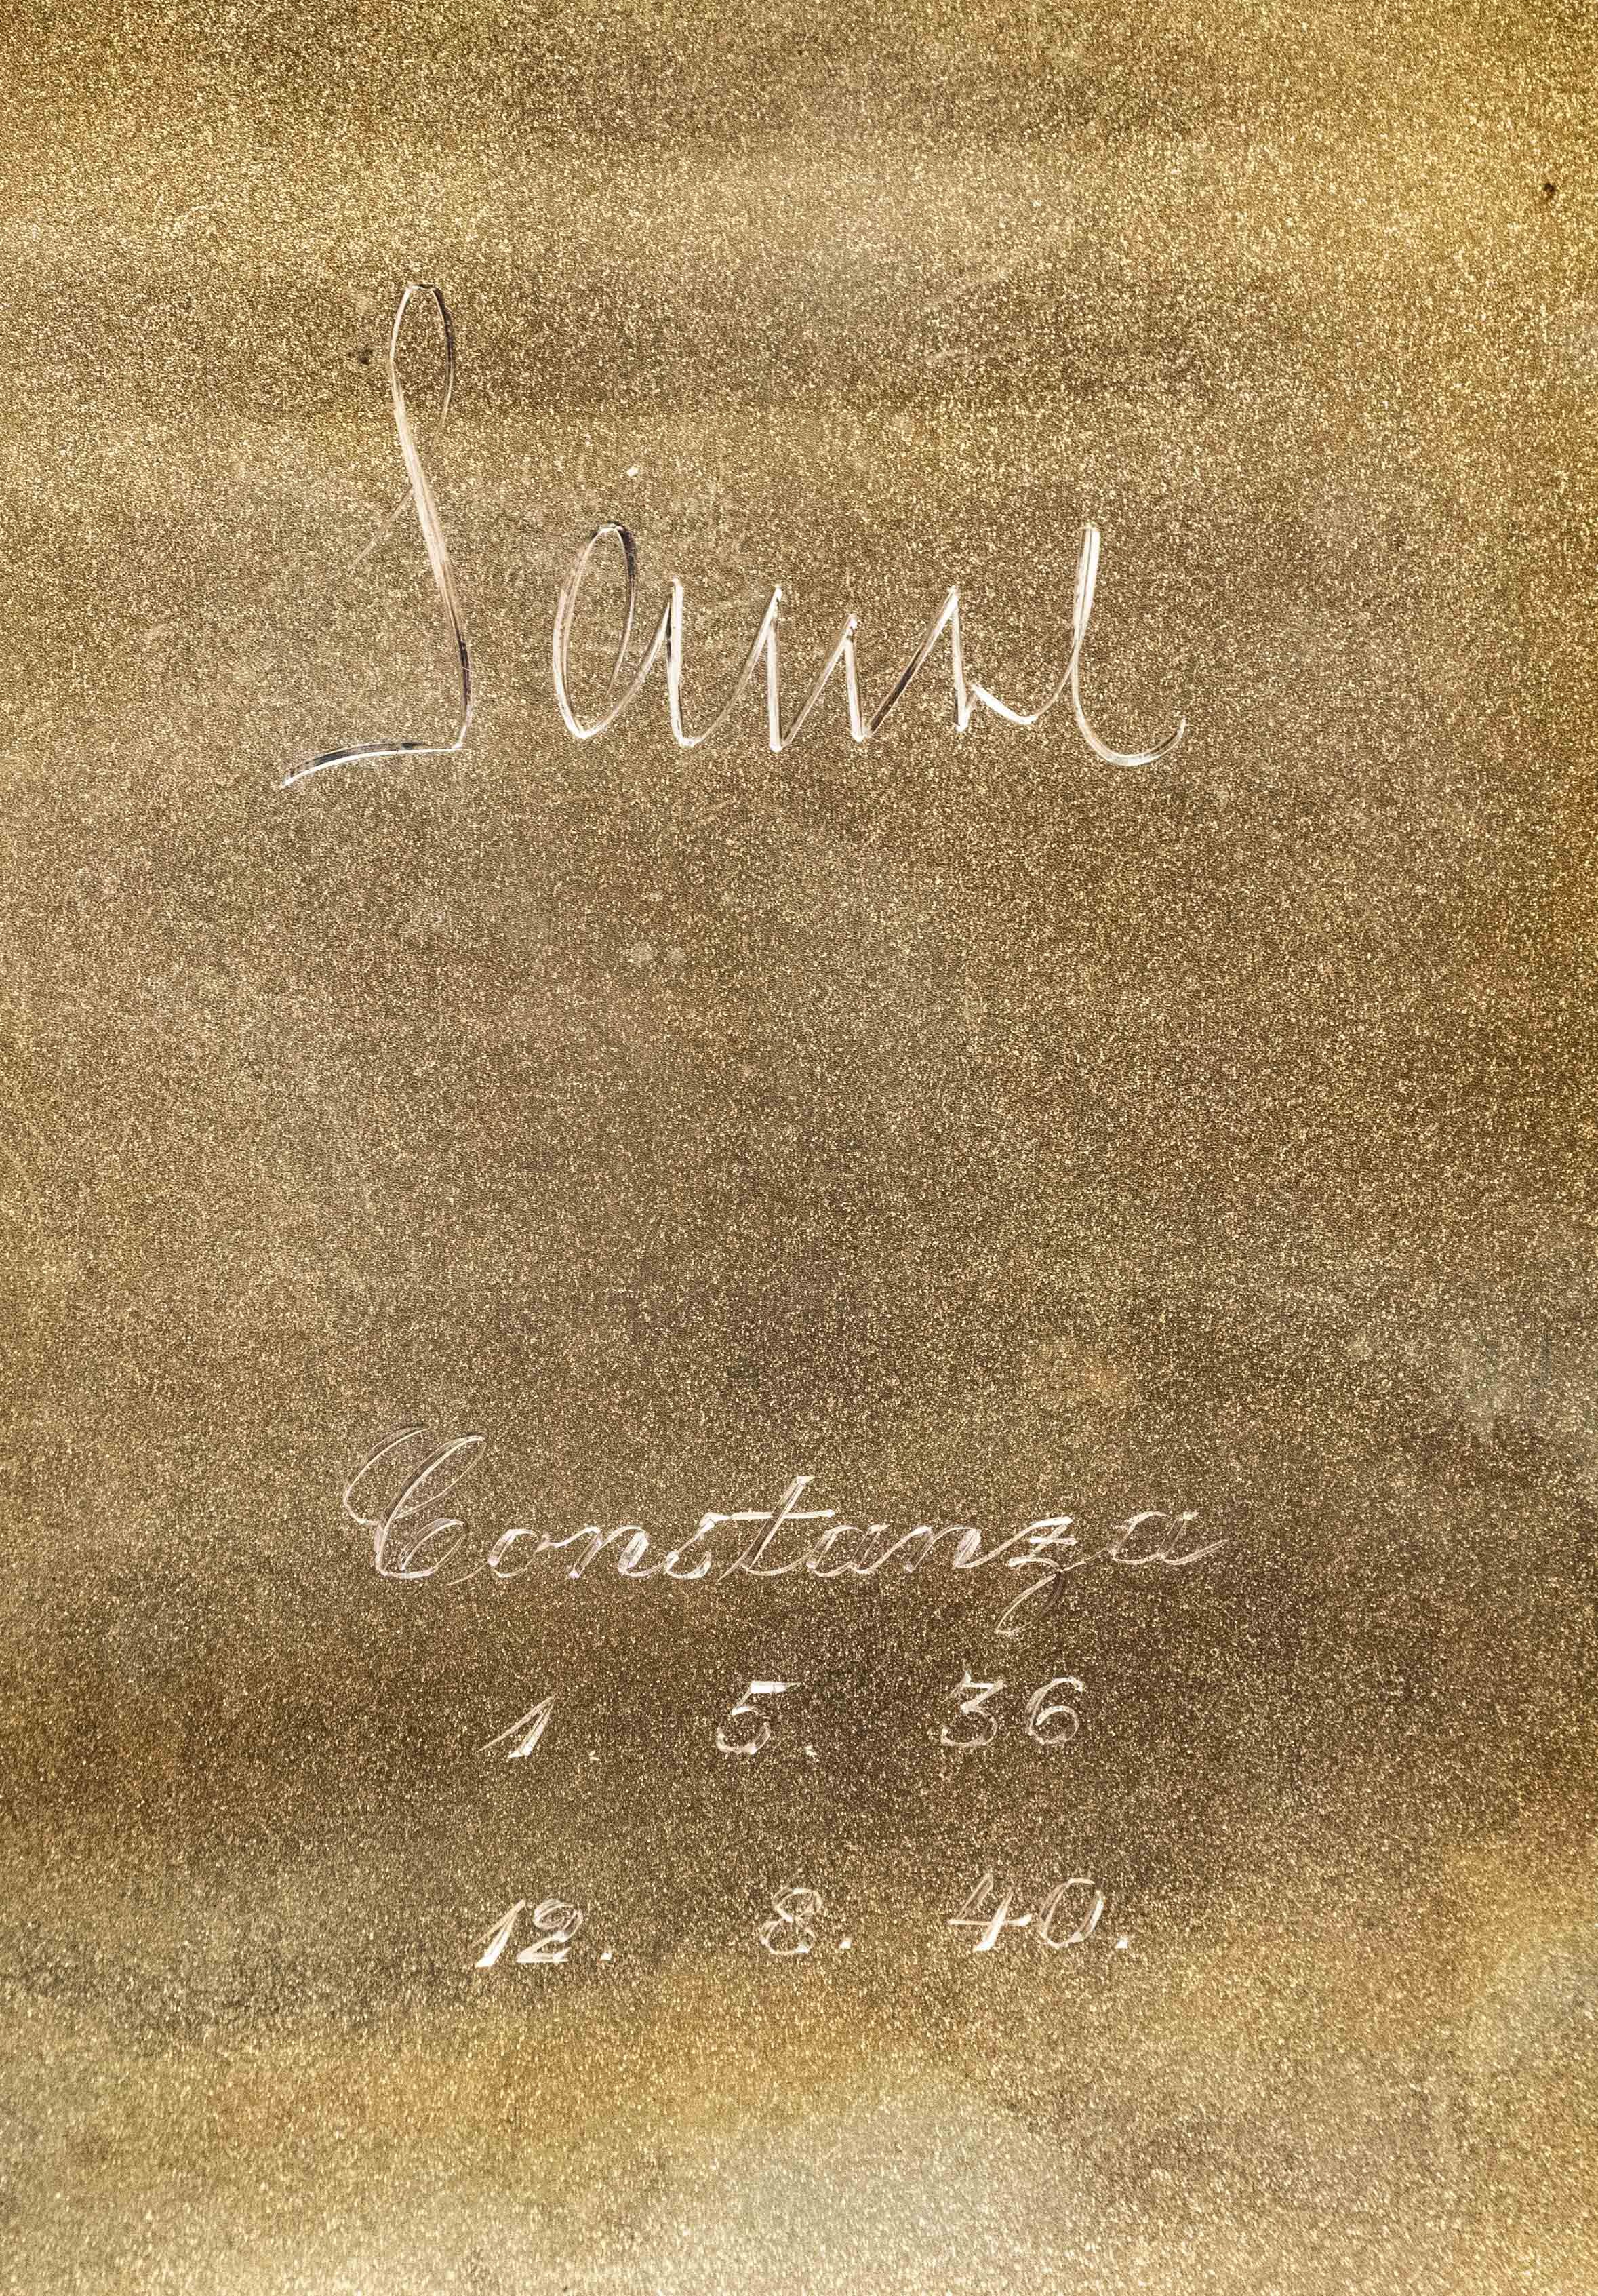 Constanza
1. 5. 36
12. 8. 40.